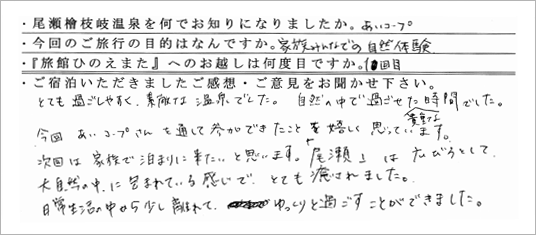 ・尾瀬檜枝岐温泉を何でお知りになりましたか。あいコープ
・今回のご旅行の目的はなんですか。家族みんなでの自然体験
・『旅館ひのえまた』へのお越しは何度目ですか。1回目
・ご宿泊いただきましたご感想・ご意見をお聞かせ下さい。
とても過ごしやすく、素敵な温泉でした。自然の中で過ごせた時間でした。
貴重な
今回あいコープさんを通して参加できたことを嬉しく思っています。
次回は家族で泊まりに来たいと思います。「尾瀬」は広びろとして、
大自然の中に包まれている感じで、とても癒されました。
日常生活の中から少し離れて、ゆっくりと過ごすことができました。